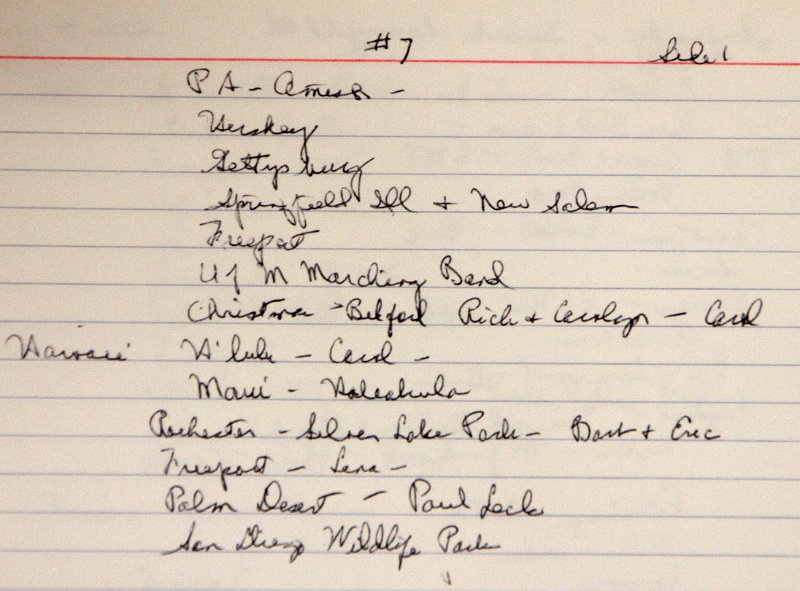 #7 Side 1
PA - Amish -
Hershey
Gettysburg
Springfield Ill + New Salem
Freeport
U of M Marching Band
Christmas - Rich & Carolyn - Carol
Hawaii H'lulu - Carol -
Maui - Haleakula
Rochester - Silver Lake Park - Bart & Eric
Freeport - Lena -
Palm Desert - Paul
San Diego Wildlife Park